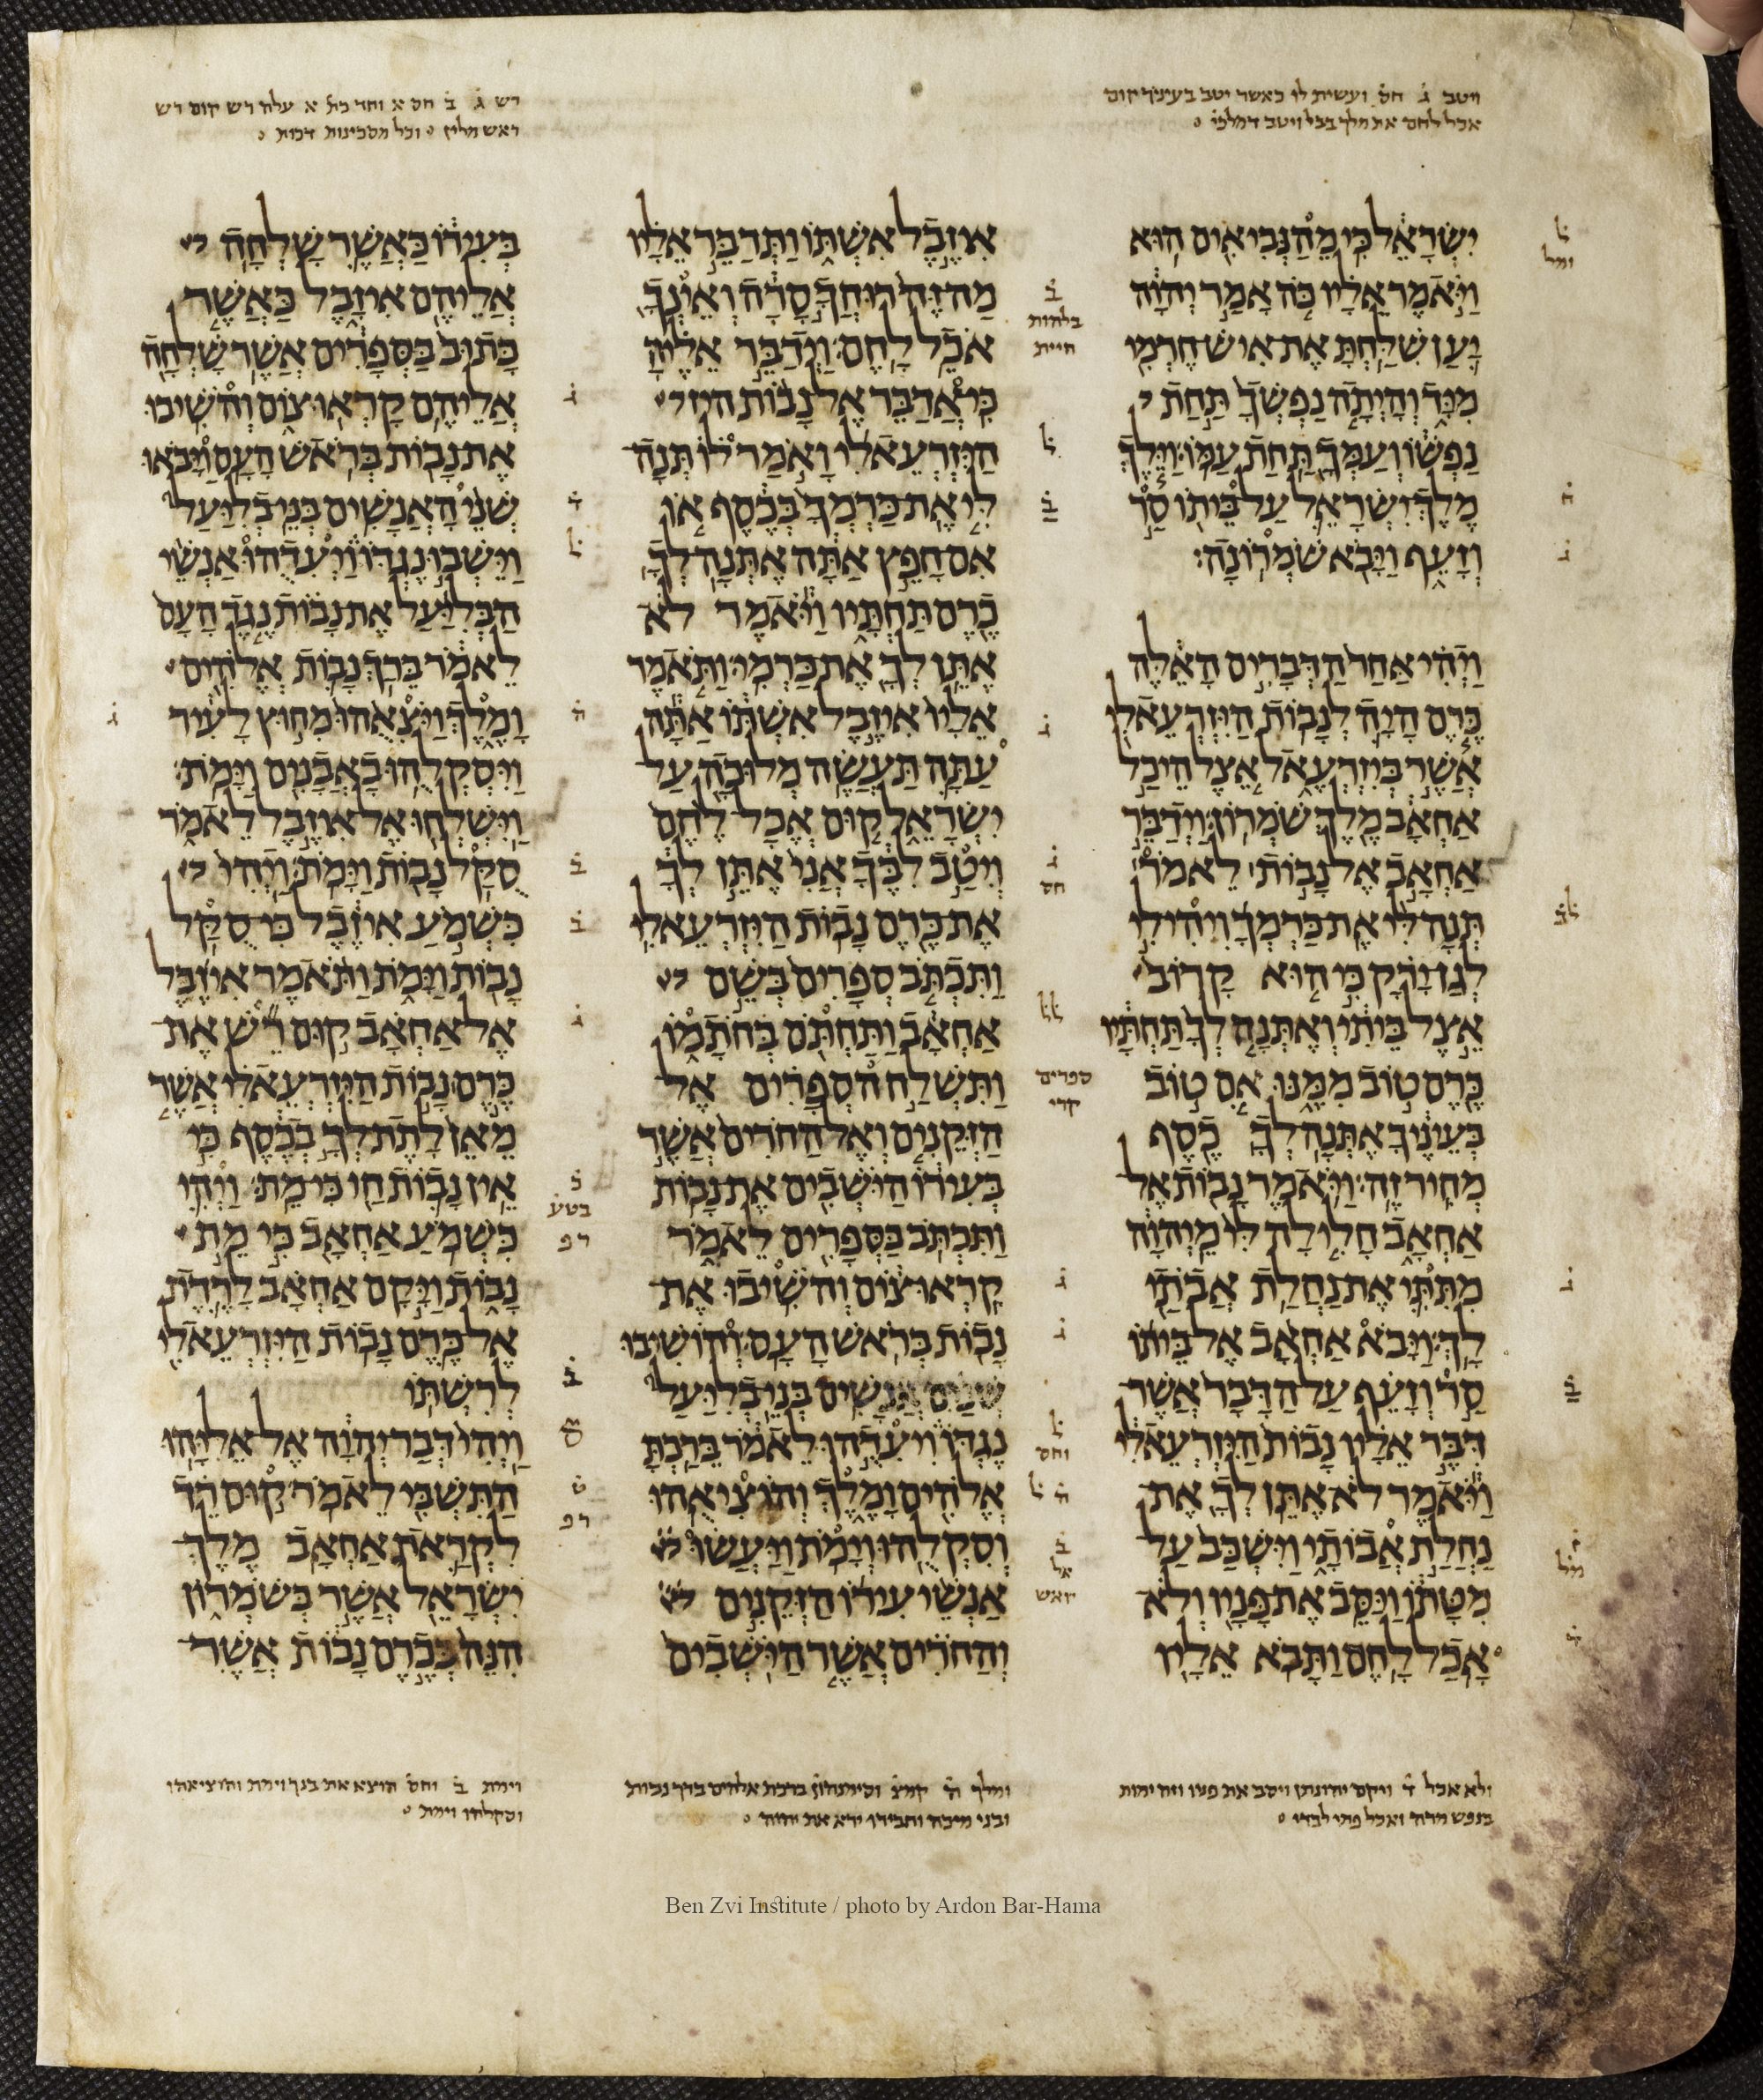 ויטב ג חס ועשית לו כאשר יטב בעיניך קום
אכל לחם את מלך בבל ויטב דמלכי
רש ג ב חס א וחד כת א עלה רש קום רש
ראש מלין וכל מסכינות דכות
יִשְׂרָאֵל כִּי מֵהַנְּבִיאִים הוּא
וַיֹּאמֶר אֵלָיו כֹּה אָמַר יְהוָה
יַעַן שִׁלַּחְתָּ אֶת אִישׁ חֶרְמִי
מִיָּד וְהָיְתָה נַפְשְׁךָ תַּחַת
נַפְשׁוֹ וְעַמְּךָ תַּחַת עַמּוֹ׃ וַיֵּלֶךְ
מֶלֶךְ יִשְׂרָאֵל עַל בֵּיתוֹ סַר
וְזָעֵף וַיָּבֹא שֹׁמְרוֹנָה׃
וַיְהִי אַחַר הַדְּבָרִים הָאֵלֶּה
כֶּרֶם הָיָה לְנָבוֹת הַיִּזְרְעֵאלִי
אֲשֶׁר בְּיִזְרְעֶאל אֵצֶל הֵיכַל
אַחְאָב מֶלֶךְ שֹׁמְרוֹן׃ וַיְדַבֵּר
אַחְאָב אֶל נָבוֹת לֵאמֹר
תְּנָה לִּי אֶת כַּרְמְךָ וִיהִי לִי
לְגַן יָרָק כִּי הוּא קָרוֹב
אֵצֶל בֵּיתִי וְאֶתְּנָה לְךָ תַּחְתָּיו
כֶּרֶם טוֹב מִמֶּנּוּ אִם טוֹב
בְּעֵינֶיךָ אֶתְּנָה לְךָ כֶסֶף
מְחִיר זֶה׃ וַיֹּאמֶר נָבוֹת אֶל
אַחְאָב חָלִילָה לִּי מֵיְהוָה
מִתִּתִּי אֶת נַחֲלַת אֲבֹתַי
לָךְ׃ וַיָּבֹא אַחְאָב אֶל בֵּיתוֹ
סַר וְזָעֵף עַל הַדָּבָר אֲשֶׁר
דִּבֶּר אֵלָיו נָבוֹת הַיִּזְרְעֵאלִי
וַיֹּאמֶר לֹא אֶתֵּן לְךָ אֶת
נַחֲלַת אֲבוֹתָי וַיִּשְׁכַּב עַל
מִטָּתוֹ וַיַּסֵּב אֶת פָּנָיו וְלֹא
אָכַל לָחֶם׃ וַתָּבֹא אֵלָיו
אִיזֶבֶל אִשְׁתּוֹ וַתְּדַבֵּר אֵלָיו
מַה זֶּה רוּחֲךָ סָרָה וְאֵינְךָ
אֹכֵל לָחֶם׃ וַיְדַבֵּר אֵלֶיהָ
כִּי אֲדַבֵּר אֶל נָבוֹת
הַיִּזְרְעֵאלִי וָאֹמַר לוֹ תְּנָה
לִּי אֶת כַּרְמְךָ בְּכֶסֶף אוֹ
אִם חָפֵץ אַתָּה אֶתְּנָה לְךָ
כֶרֶם תַּחְתָּיו וַיֹּאמֶר לֹא
אֶתֵּן לְךָ אֶת כַּרְמִי׃ וַתֹּאמֶר
אֵלָיו אִיזֶבֶל אִשְׁתּוֹ אַתָּה
עַתָּה תַּעֲשֶׂה מְלוּכָה עַל
יִשְׂרָאֵל קוּם אֱכָל לֶחֶם
וְיִטַב לִבֶּךָ אֲנִי אֶתֵּן לְךָ
אֶת כֶּרֶם נָבוֹת הַיִּזְרְעֵאלִי׃
וַתִּכְתֹּב סְפָרִים בְּשֵׁם
אַחְאָב וַתַּחְתֹּם בְּחֹתָמוֹ
וַתִּשְׁלַח הסְפָרִים אֶל
הַזְּקֵנִים וְאֶל הַחֹרִים אֲשֶׁר
בְּעִירוֹ הַיֹּשְׁבִים אֶת נָבוֹת׃
וַתִּכְתֹּב בַּסְּפָרִים לֵאמֹר
קִרְאוּ צוֹם וְהֹשִׁיבוּ אֶת
נָבוֹת בְּרֹאשׁ הָעָם׃ וְהוֹשִׁיבוּ
שְׁנַיִם אֲנָשִׁים בְּנֵי בְלִיַּעַל
נֶגְדּוֹ וִיעִדֻהוּ לֵאמֹר בֵּרַכְתָּ
אֱלֹהִים וָמֶלֶךְ וְהוֹצִיאֻהוּ
וְסִקְלֻהוּ וְיָמֹת׃ וַיַּעֲשׂוּ
אַנְשֵׁי עִירוֹ הַזְּקֵנִים
וְהַחֹרִים אֲשֶׁר הַיֹּשְׁבִים
בְּעִירוֹ כַּאֲשֶׁר שָׁלְחָה
אֲלֵיהֶם אִיזָבֶל כַּאֲשֶׁר
כָּתוּב בַּסְּפָרִים אֲשֶׁר שָׁלְחָה
אֲלֵיהֶם׃ קָרְאוּ צוֹם וְהֹשִׁיבוּ
אֶת נָבוֹת בְּרֹאשׁ הָעָם׃ וַיָּבֹאוּ
שְׁנֵי הָאֲנָשִׁים בְּנֵי בְלִיַּעַל
וַיֵּשְׁבוּ נֶגְדּוֹ וַיְעִדֻהוּ אַנְשֵׁי
הַבְּלִיַּעַל אֶת נָבוֹת נֶגֶד הָעָם
לֵאמֹר בֵּרַךְ נָבוֹת אֱלֹהִים
וָמֶלֶךְ וַיֹּצִאֻהוּ מִחוּץ לָעִיר
וַיִּסְקְלֻהוּ בָאֲבָנִים וַיָּמֹת׃
וַיִּשְׁלְחוּ אֶל אִיזֶבֶל לֵאמֹר
סֻקַּל נָבוֹת וַיָּמֹת׃ וַיְהִי
כִּשְׁמֹעַ אִיזֶבֶל כִּי סֻקַּל
נָבוֹת וַיָּמֹת וַתֹּאמֶר אִיזֶבֶל
אֶל אַחְאָב קוּם רֵשׁ אֶת
כֶּרֶם נָבוֹת הַיִּזְרְעֵאלִי אֲשֶׁר
מֵאֵן לָתֶת לְךָ בְכֶסֶף כִּי
אֵין נָבוֹת חַי כִּי מֵת׃ וַיְהִי
כִּשְׁמֹעַ אַחְאָב כִּי מֵת
נָבוֹת וַיָּקָם אַחְאָב לָרֶדֶת
אֶל כֶּרֶם נָבוֹת הַיִּזְרְעֵאלִי
לְרִשְׁתּוֹ
וַיְהִי דְּבַר יְהוָה אֶל אֵלִיָּהוּ
הַתִּשְׁבִּי לֵאמֹר׃ קוּם רֵד
לִקְרַאת אַחְאָב מֶלֶךְ
יִשְׂרָאֵל אֲשֶׁר בְּשֹׁמְרוֹן
הִנֵּה בְּכֶרֶם נָבוֹת אֲשֶׁר
ולא אכל ד ויקם יהונתן ויסב את פניו וזה ימות
בנפש מרה ואכל פתי לבדו
ומלך ה קמצ וסימנהון ברכת אלהים ברך נבות
ובני מיכה וחבירו ירא את יהוה
וימת ב וחס הוצא את בנך וימת והוציאהו
וסקלהו וימת
Ben Zvi Institute / photo by Ardon Bar-Hama